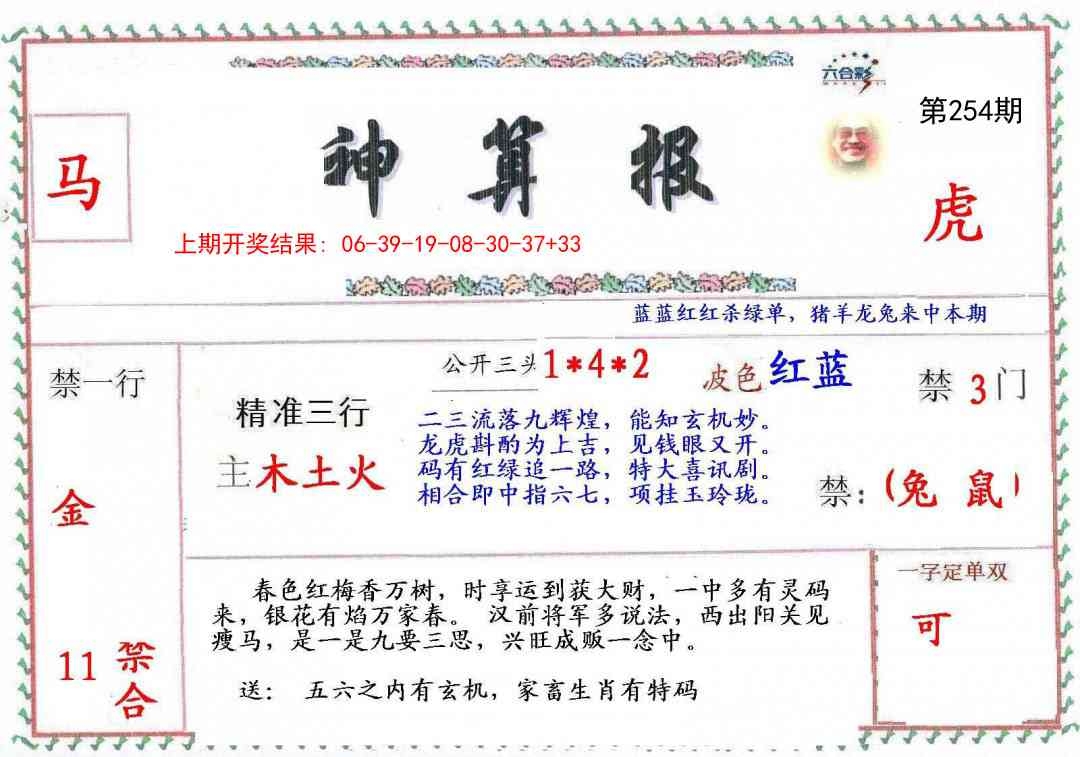 六合彩
第254期
马
神算报
虎
上期开奖结果: 06-39-19-08-30-37+33
蓝蓝红红杀绿单，猪羊龙兔来中本期
禁一行
公开三头1*4*2
波色红蓝
禁3门
精准三行
主木土火
二三流落九辉煌，能知玄机妙。
龙虎斟酌为上吉，见钱眼又开。
码有红绿追一路，特大喜讯剧。
相合即中指六七，项挂玉玲珑。
禁:(兔 鼠)
金
11禁合
春色红梅香万树，时享运到获大财，一中多有灵码
来，银花有焰万家春。 汉前将军多说法，西出阳关见
瘦马，是一是九要三思，兴旺成贩一念中。
送: 五六之内有玄机，家畜生肖有特码
一字定单双
可